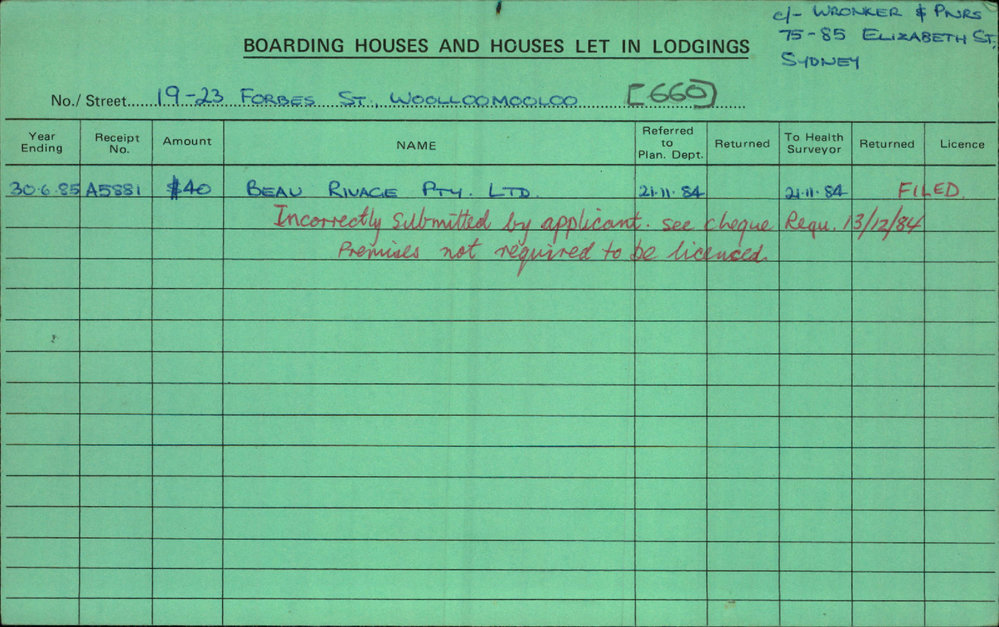 c/- WRONKER & PNRS
75-85 ELIZABETH ST.
SYDNEY
BOARDING HOUSES AND HOUSES LET IN LODGINGS
No./ Street 19-23 FORBES ST. WOOLLOOMOOLOO [660]
Year Ending Receipt No. Amount NAME Referred to Plan. Dept. Returned To Health Surveyor Returned Licence
30·6·85 A5881 $40 BEAU RIVAGE PTY. LTD. 21·11·84 21·11·84 FILED.
Incorrectly submitted by applicant. see cheque Requ. 13/12/84
Premises not required to be licenced.